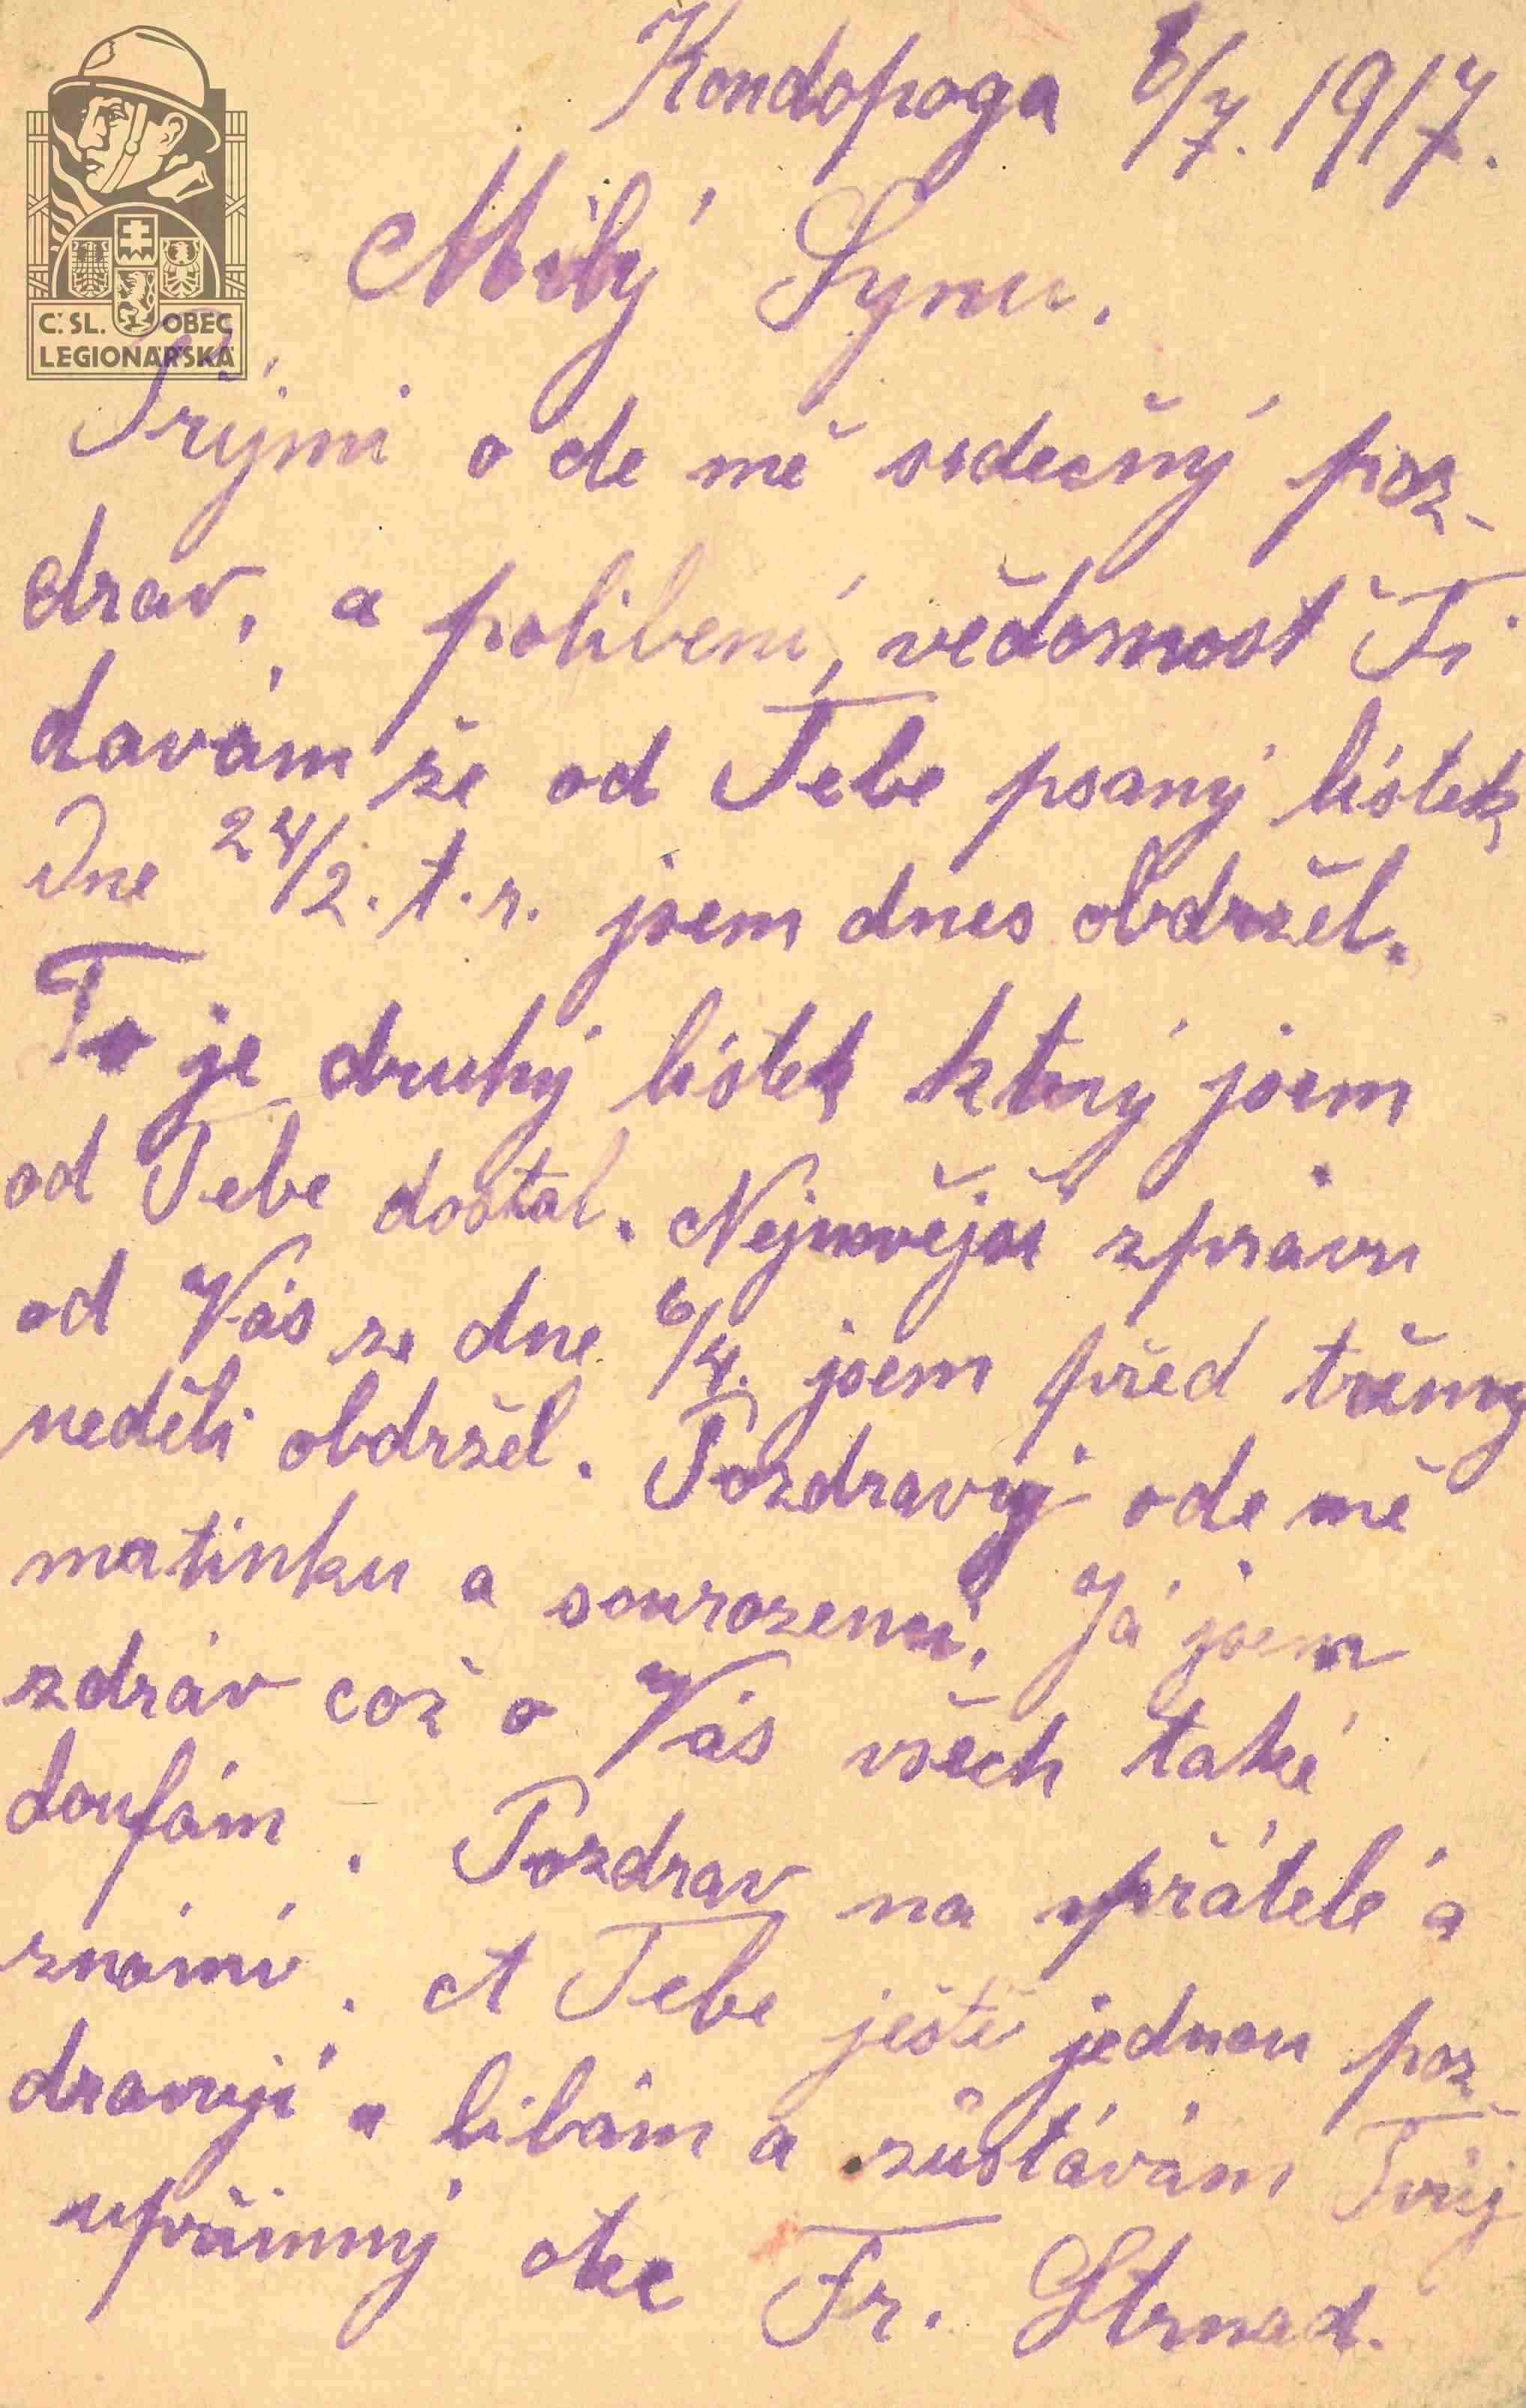 Kondopoga 6/7. 1917.
Milý Synu.
Příjmi ode mě srdečný poz-
drav, a políbení, vědomost Ti
davám že od Tebe psaný lístek
Dne 24/2. t.r. jsem dnes obdržel.
To je druhý lístek který jsem
od Tebe dostal. Nejnovější zprávu
od Vás ze dne 6/4. jsem před třemy
neděli obdržel. Pozdravuj ode mě
matinku a sourozenci. Já jsem
zdráv což o Vás všech také
doufám. Pozdrav na přátelé a
známí. A Tebe ještě jednou poz-
dravují a líbám a zůstávám Tvůj
upřímný otec Fr. Strnad.
Č. SL. OBEC
LEGIONÁŘSKÁ